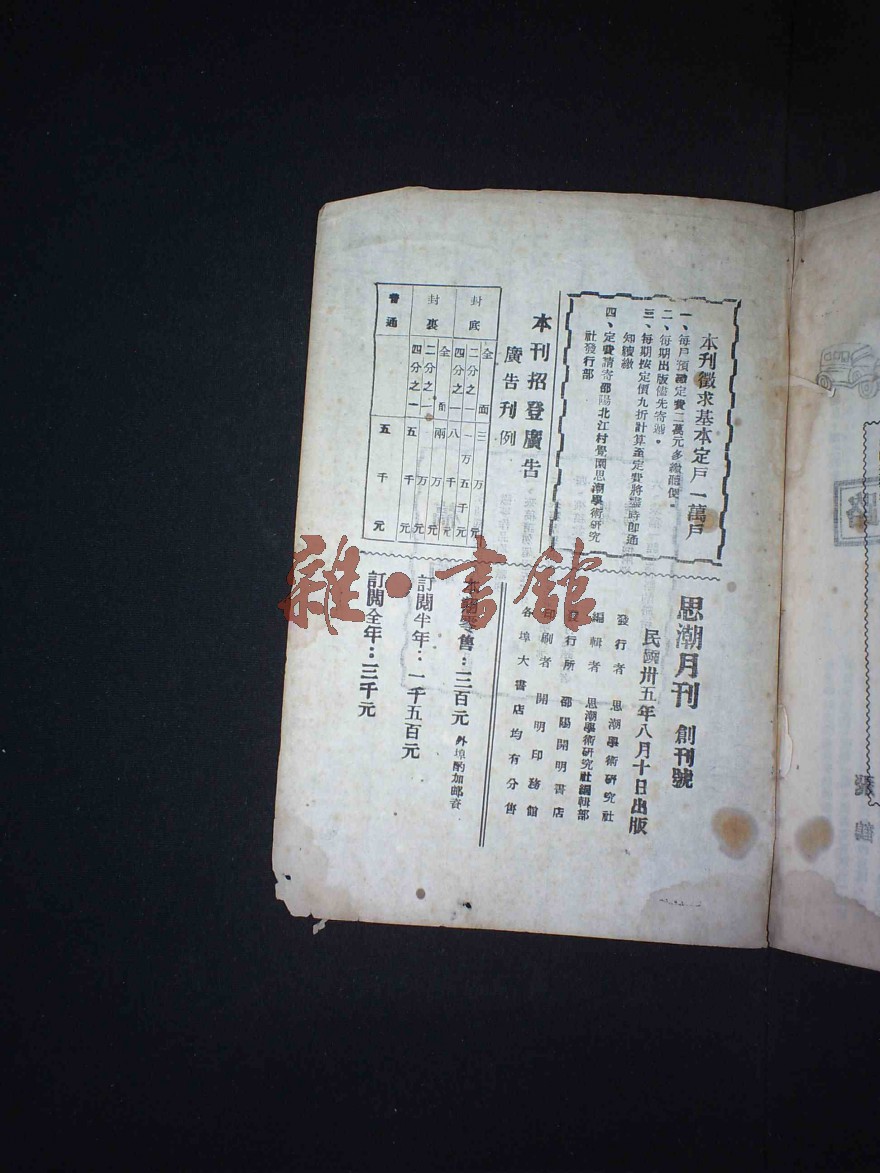 本刊徵求基本定戶一萬戶
一、每戶預繳定費二萬元多繳聽便。
二、每期出版儘先寄遞。
三、每期按定價九折計算至定費將罄時即通
知續繳
四、定費請寄邵陽北江村覺園思潮學術研究
社發行部
本刊招登廣告
廣告刊例
封底
全面三万元
二分之一一万五千元
四分之一八千元
封裏
全面兩万元
二分之一一万元
四分之一五千元
普通
五千元
思潮月刊 創刊號
民國卅五年八月十日出版
發行者 思潮學術研究社
編輯者 思潮學術研究社編輯部
發行所 邵陽開明書店
印刷者 開明印務館
各埠大書店均有分售
本期零售：三百元 外埠酌加邮資
訂閱半年：一千五百元
訂閱全年：三千元
雜·書館